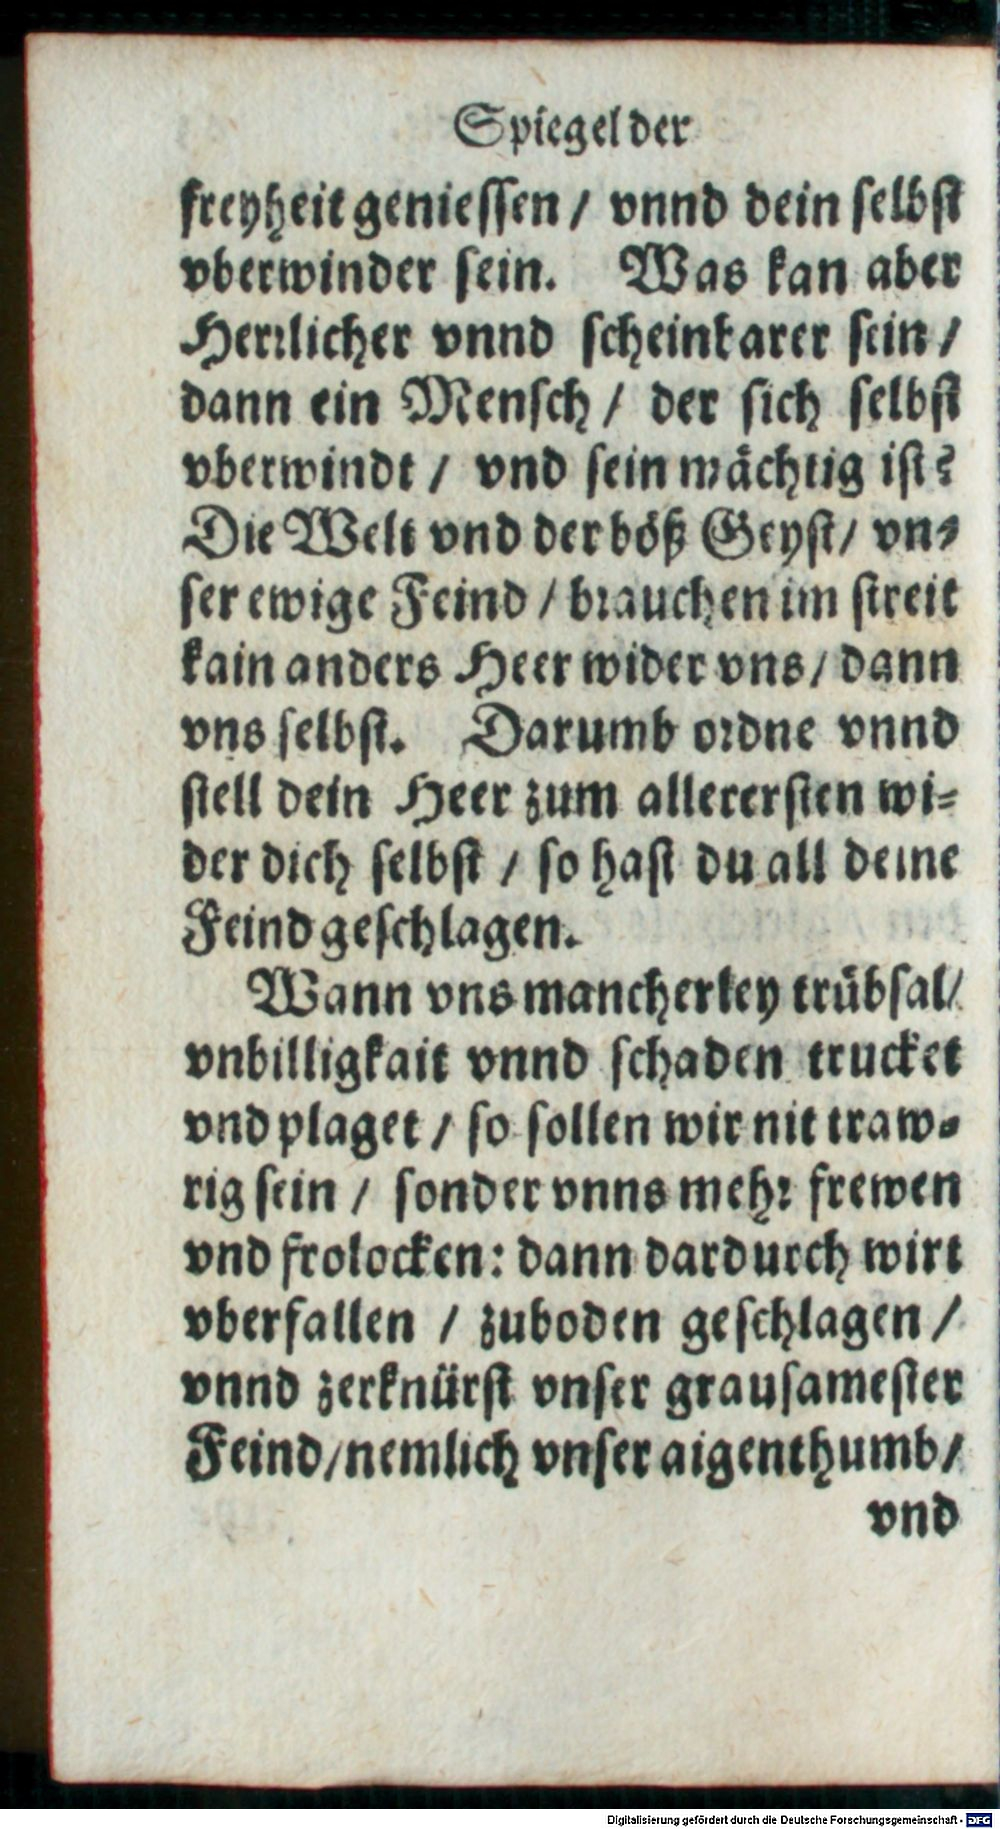 Spiegel der
freyheit geniessen / vnnd dein selbst
vberwinder sein. Was kan aber
Herrlicher vnnd scheinbarer sein /
dann ein Mensch / der sich selbst
vberwindt / vnd sein mächtig ist?
Die Welt vnd der böß Geyst / vn-
ser ewige Feind / brauchen im streit
kain anders Heer wider vns / dann
vns selbst. Darumb ordne vnnd
stell dein Heer zum allerersten wi-
der dich selbst / so hast du all deine
Feind geschlagen.
Wann vns mancherley trübsal /
vnbilligkait vnnd schaden trucket
vnd plaget / so sollen wir nit traw-
rig sein / sonder vnns mehr frewen
vnd frolocken: dann dardurch wirt
vberfallen / zuboden geschlagen /
vnnd zerknürst vnser grausamester
Feind / nemlich vnser aigenthumb /
vnd
Digitalisierung gefördert durch die Deutsche Forschungsgemeinschaft - DFG